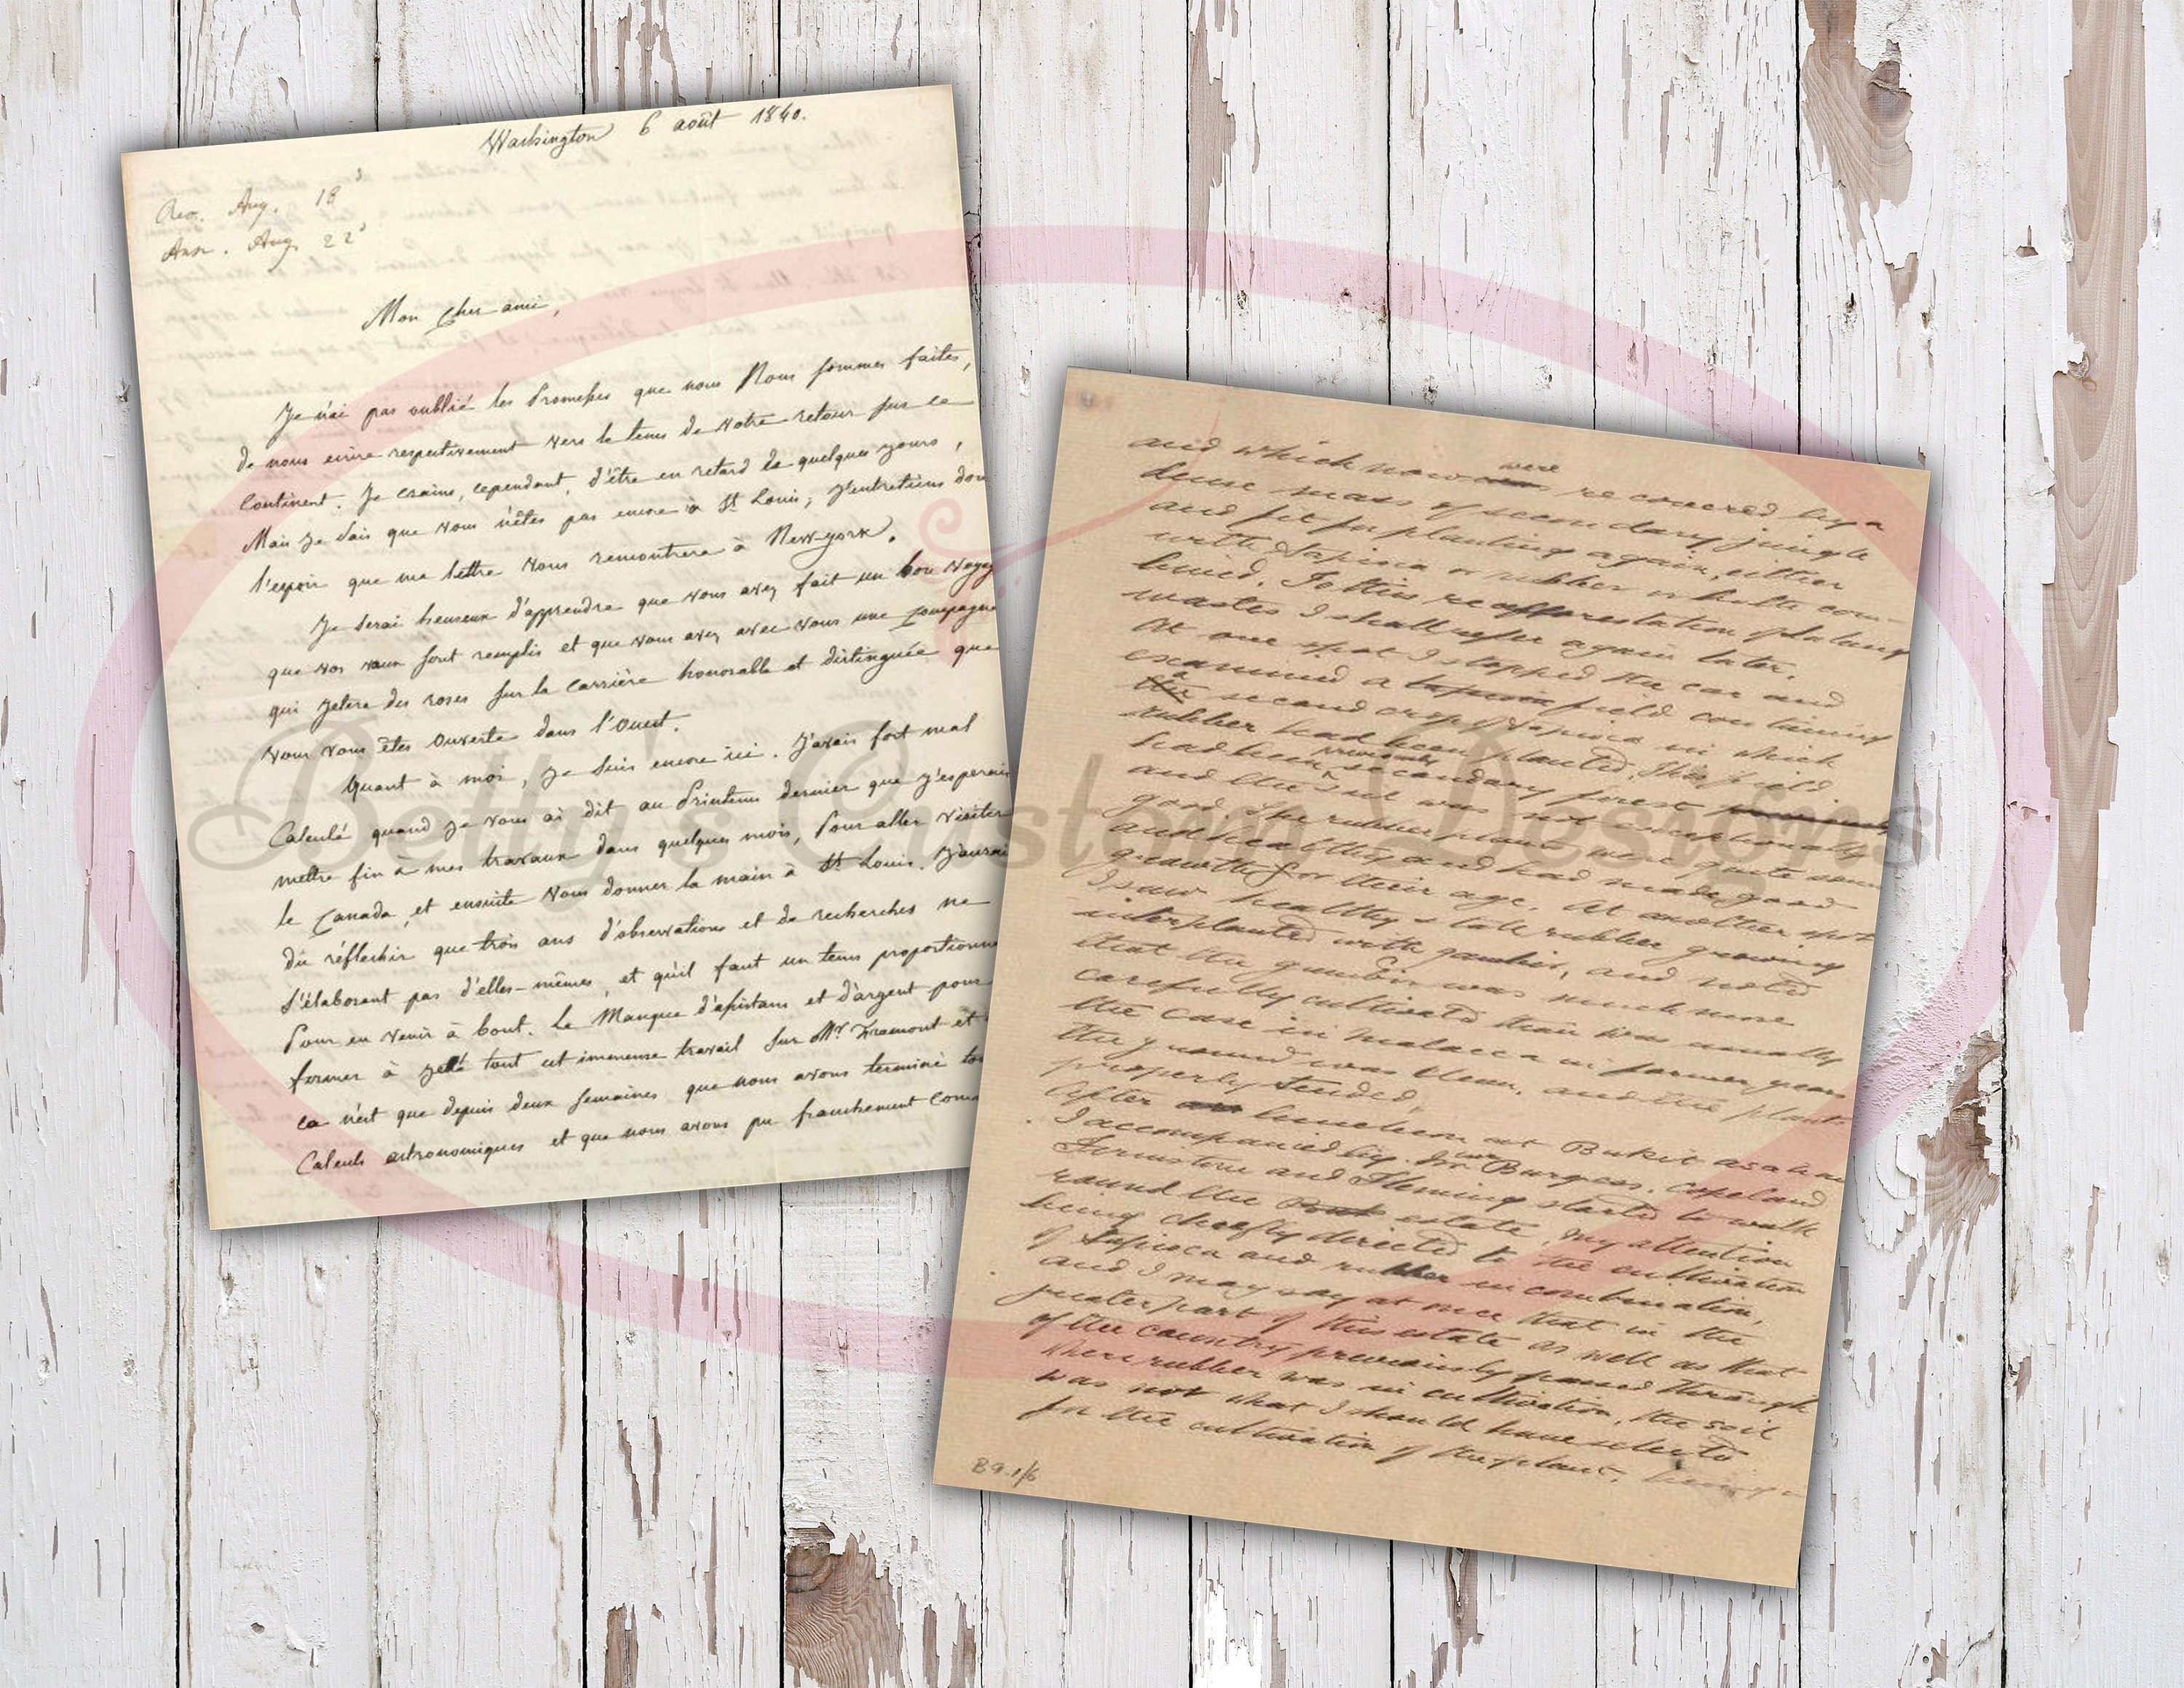 Washington 6 août 1840.
Rec. Aug. 18
Ansr. Aug. 22
Mon cher ami,
Je n'ai pas oublié les promesses que nous nous sommes faites,
de nous écrire respectivement vers le tems de notre retour sur ce
continent. Je crains, cependant, d'être en retard de quelques jours,
Mais je sais que vous n'êtes pas encore à St Louis; j'entretiens donc
l'espoir que ma lettre vous rencontrera à New-york.
Je serai heureux d'apprendre que vous avez fait un bon voyage
que vos vœux sont remplis et que vous avez avec vous une compagne
qui jetera des roses sur la carrière honorable et distinguée que
vous vous êtes ouverte dans l'Ouest.
Quant à moi, je suis encore ici. J'avais fort mal
calculé quand je vous ai dit au printems dernier que j'esperais
mettre fin à mes travaux dans quelques mois, pour aller visiter
le Canada, et ensuite vous donner la main à St Louis. J'aurais
dû réflechir que trois ans d'observations et de recherches ne
s'élaborent pas d'elles-mêmes, et qu'il faut un tems proportionné
pour en venir à bout. Le manque d'assistans et d'argent pour
former à jetté tout cet immense travail sur Mr Fremont et
ce n'est que depuis deux semaines que nous avons terminé tous
calculs astronomiques et que nous avons pu franchement com
Betty's Custom Designs
and which now were re covered by a
dense mass of secondary jungle
and fit for planting again, either
with tapioca or rubber or both com-
bined. To this reafforestation of lalang
wastes I shall refer again later.
At one spot I stopped the car and
examined a tapioca field containing
a second crop of tapioca in which
rubber had been planted. This field
had been previously secondary forest
and the soil was not exceptionally
good. The rubber plants were quite sound
and healthy and had made good
growth for their age. At another spot
I saw healthy & tall rubber growing
interplanted with gambir, and noted
that the gambir was much more
carefully cultivated than was usually
the case in Malacca in former years
the ground was clean, and the plants
properly tended.
After luncheon at Bukit Asahan
I accompanied by Mr Burgess, Copeland
and Fleming started to walk
round the estate, my attention
being chiefly directed to the cultivation
of tapioca and rubber in combination,
and I may say at once that in the
greater part of this estate as well as that
of the country previously passed through
where rubber was in cultivation, the soil
was not what I should have selected
for the cultivation of the plant, being
B9.1/6